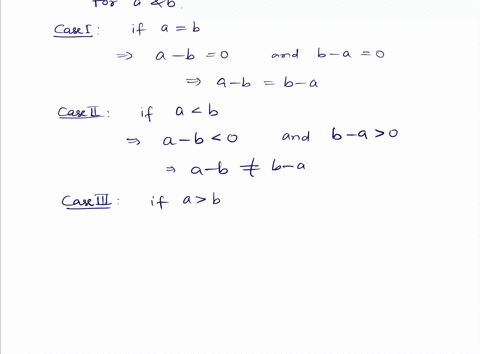 For a & b.
Case I: if a = b
⇒ a − b = 0 and b − a = 0
⇒ a − b = b − a
Case II: if a < b
⇒ a − b < 0 and b − a > 0
⇒ a − b ≠ b − a
Case III: if a > b